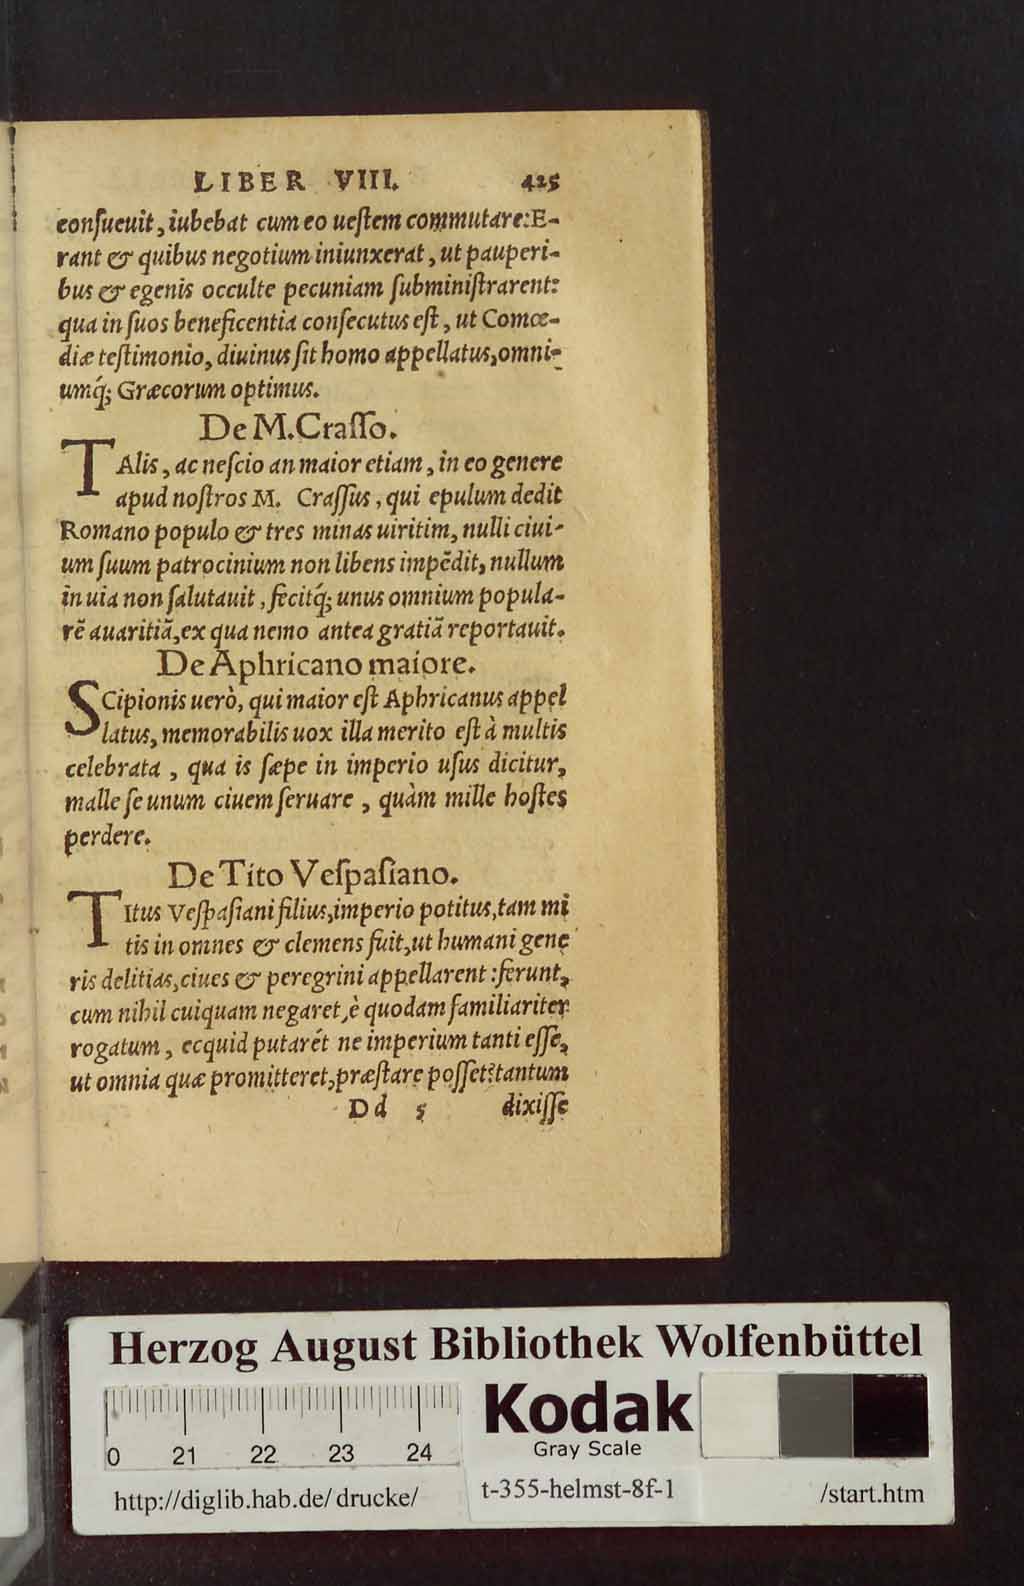 LIBER VIII. 425
conſueuit, iubebat cum eo ueſtem commutare: E-
rant & quibus negotium iniunxerat, ut pauperi-
bus & egenis occulte pecuniam ſubminiſtrarent:
qua in ſuos beneficentia conſecutus eſt, ut Comœ-
diæ teſtimonio, diuinus ſit homo appellatus, omni-
umq́; Græcorum optimus.
De M. Craſſo.
TAlis, ac neſcio an maior etiam, in eo genere
apud noſtros M. Craſſus, qui epulum dedit
Romano populo & tres minas uiritim, nulli ciui-
um ſuum patrocinium non libens impẽdit, nullum
in uia non ſalutauit, fecitq́; unus omnium popula-
rẽ auaritiã, ex qua nemo antea gratiã reportauit.
De Aphricano maiore.
SCipionis uerò, qui maior eſt Aphricanus appel
latus, memorabilis uox illa merito eſt à multis
celebrata, qua is ſæpe in imperio uſus dicitur,
malle ſe unum ciuem ſeruare, quàm mille hoſtes
perdere.
De Tito Veſpaſiano.
TItus Veſpaſiani filius, imperio potitus, tam mi
tis in omnes & clemens fuit, ut humani gene
ris delitias, ciues & peregrini appellarent: ferunt,
cum nihil cuiquam negaret, è quodam familiariter
rogatum, ecquid putarét ne imperium tanti eſſe,
ut omnia quæ promitteret, præſtare poſſet? tantum
Dd 5 dixiſſe
Herzog August Bibliothek Wolfenbüttel
0 21 22 23 24
Kodak
Gray Scale
http://diglib.hab.de/drucke/ t-355-helmst-8f-1 /start.htm